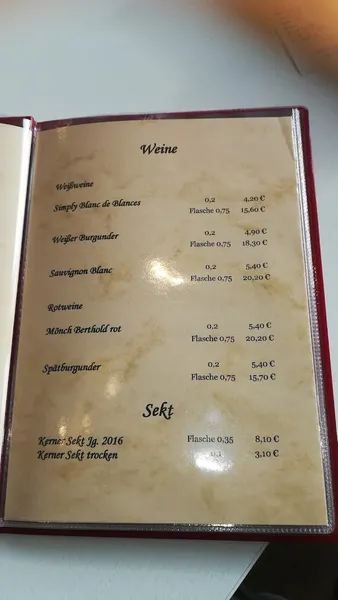 Weine
Weißweine
Simply Blanc de Blances 0,2 4,20 €
Flasche 0,75 15,60 €
Weißer Burgunder 0,2 4,90 €
Flasche 0,75 18,30 €
Sauvignon Blanc 0,2 5,40 €
Flasche 0,75 20,20 €
Rotweine
Mönch Berthold rot 0,2 5,40 €
Flasche 0,75 20,20 €
Spätburgunder 0,2 5,40 €
Flasche 0,75 15,70 €
Sekt
Kerner Sekt Jg. 2016 Flasche 0,35 8,10 €
Kerner Sekt trocken 0,1 3,10 €